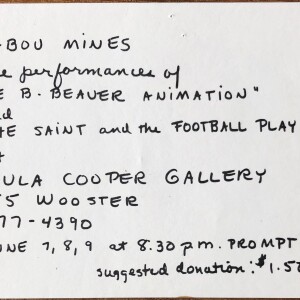 BOU MINES
performances of
B. BEAVER ANIMATION"
SAINT and the FOOTBALL PLAY
ULA COOPER GALLERY
5 WOOSTER
77-4390
UNE 7, 8, 9 at 8:30 p.m. PROMPT
suggested donation: $1.50